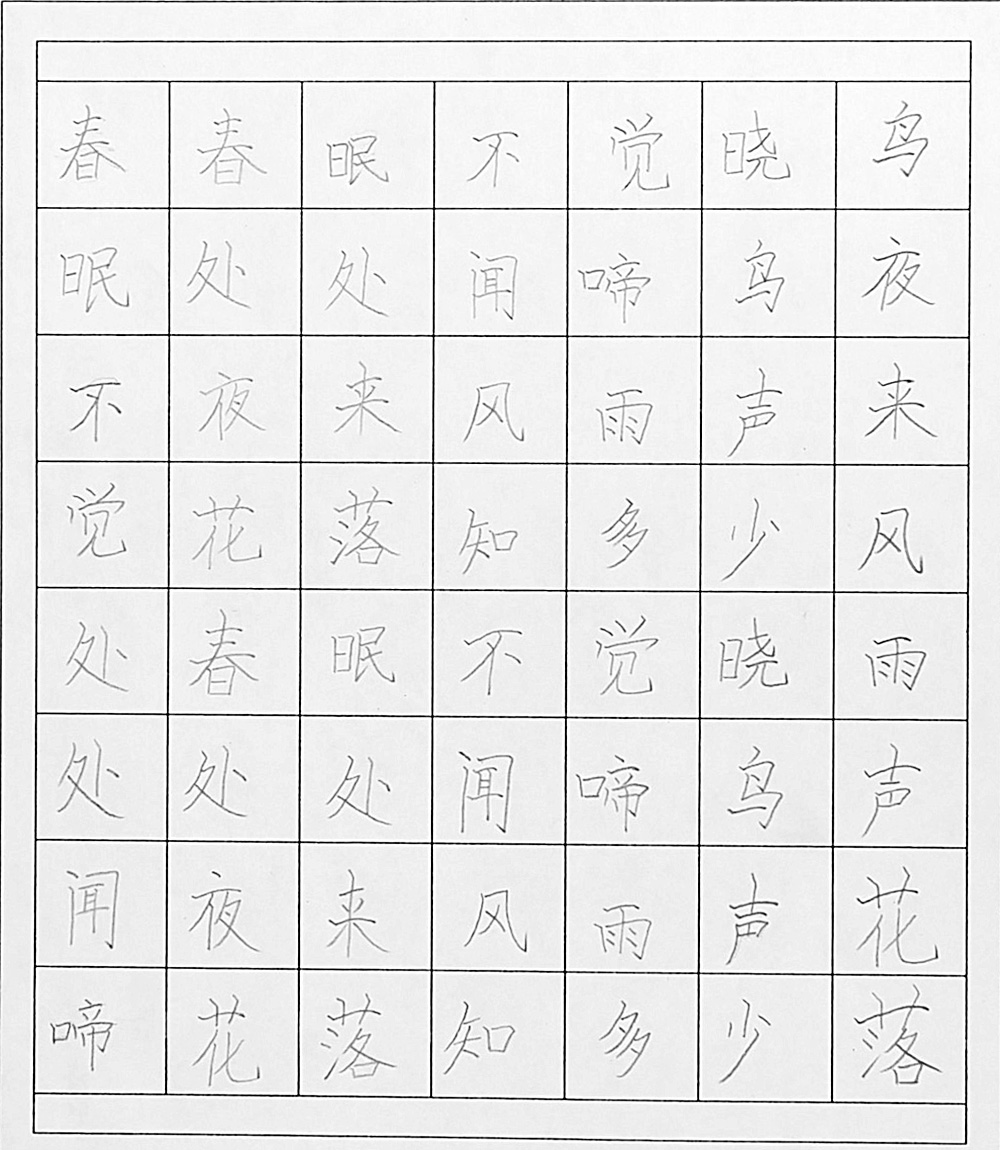 春春眠不觉晓鸟
眠处处闻啼鸟夜
不夜来风雨声来
觉花落知多少风
处春眠不觉晓雨
处处处闻啼鸟声
闻夜来风雨声花
啼花落知多少落